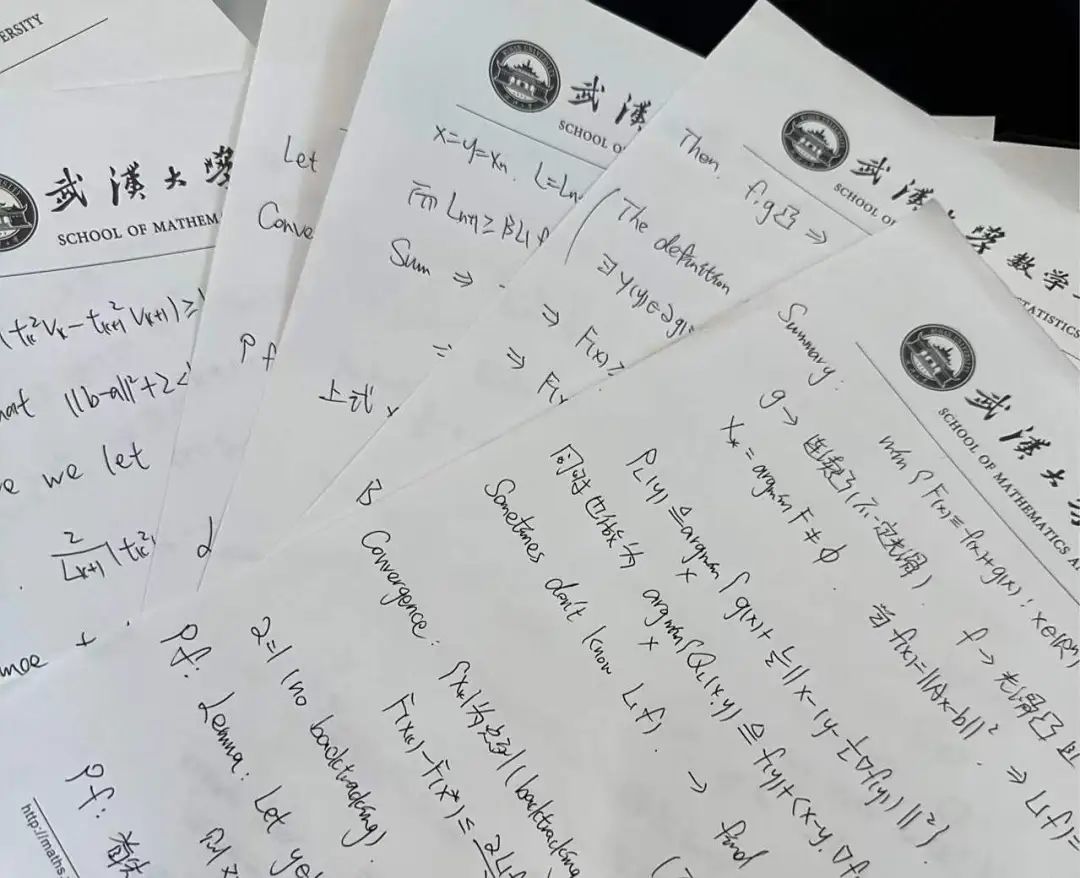 ERSITY
武漢大學
SCHOOL OF MATHEM
(t_k^2 V_k - t_{k+1}^2 V_{k+1}) ≥
||b-a||^2 + 2<
we let
2/L_{k+1} t_k^2
Let
Conve
Pf
武漢
SCHOOL O
x=y=x_n. L=L_n
所以 L_{n+1} ≥ βL(f
Sum ⇒
上式
武漢
SCHOOL OF
Then. f.g凸 ⇒
(The definition
∃ γ(y)∈∂g(
⇒ F(x) ≥
⇒ F(x
學數學
TATISTICS
武漢大
SCHOOL OF MATHEMATICS A
Summary:
min { F(x) ≡ f(x)+g(x) : x∈R^n
g → 连续凸(不一定光滑)
f → 光滑凸
X_* = argmin F ≠ ∅
当 f(x)=||Ax-b||^2 ⇒ L(f)=
P_L(y) ≜ argmin_x { g(x) + L/2 || x-(y-1/L ∇f(y)) ||^2 }
argmin_x { Q_L(x,y) ≜ f(y) + <x-y, ∇f
Sometimes don't know L(f). → find
B
Convergence: {x_k}为 (backtracking
F(x_k) - F(x*) ≤ 2L(f
2=1 (no backtracking)
Pf: Lemma: Let y∈
Pf: 首先
http://maths.